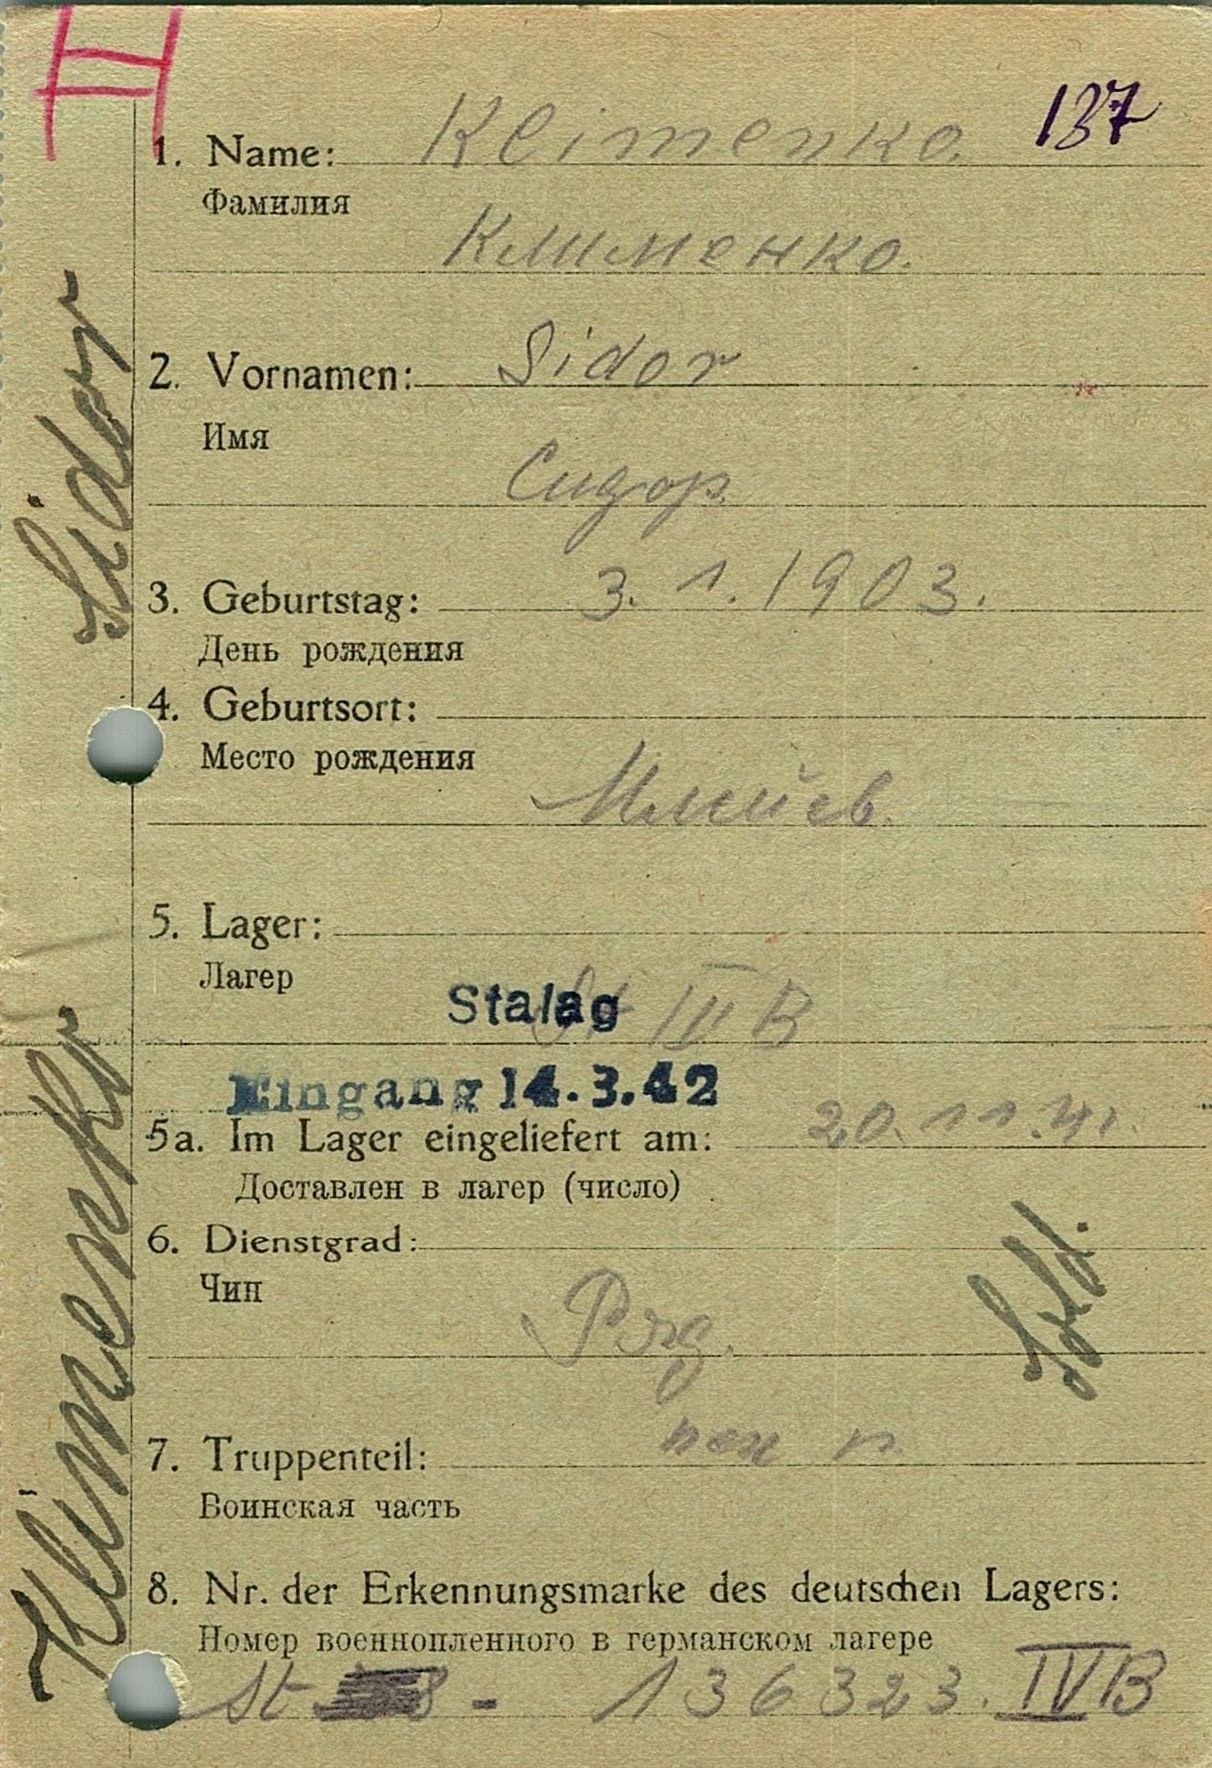 H
137
1. Name: Klimenko.
Фамилия
Клименко.
2. Vornamen: Sidor
Имя
Сидор.
3. Geburtstag: 3. 1. 1903.
День рождения
4. Geburtsort:
Место рождения
5. Lager:
Лагер
Stalag
Eingang 14.3.42
5a. Im Lager eingeliefert am: 20. 11. 41.
Доставлен в лагер (число)
6. Dienstgrad:
Чин
Ряд.
Sold.
7. Truppenteil: пех п.
Воинская часть
8. Nr. der Erkennungsmarke des deutschen Lagers:
Номер военнопленного в германском лагере
St - 136323. IV B
Klimenko Sidor